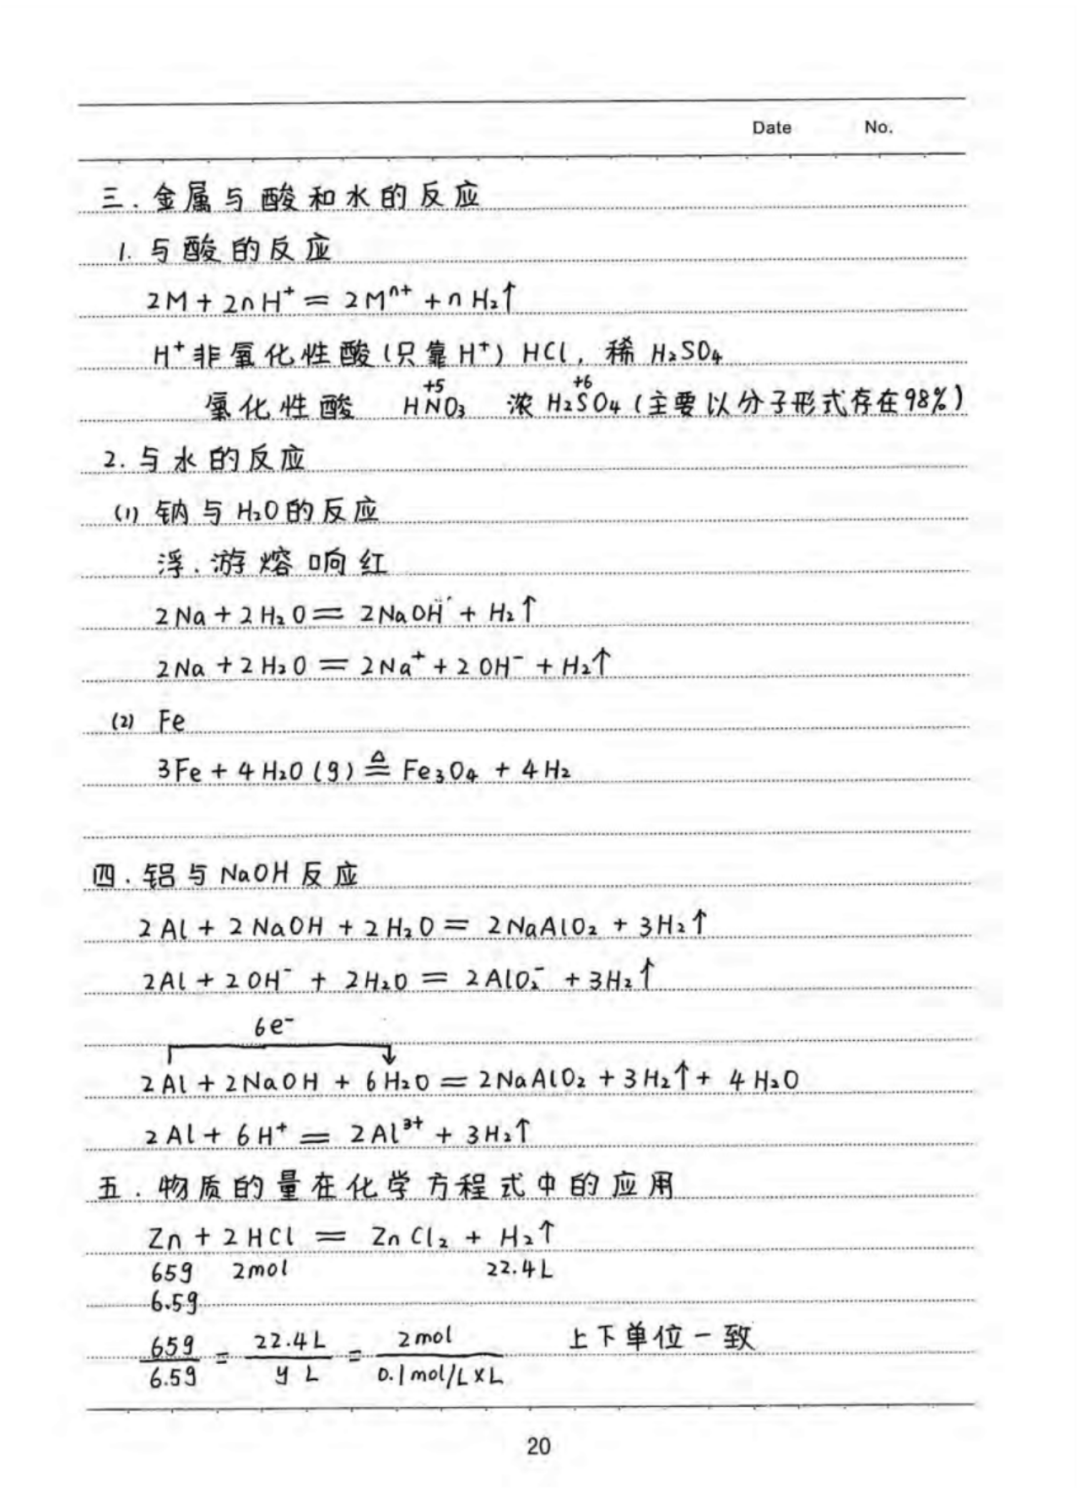 Date No.
三.金属与酸和水的反应
1.与酸的反应
2M+2nH⁺=2Mⁿ⁺+nH₂↑
H⁺非氧化性酸(只靠H⁺) HCl,稀H₂SO₄
+5 +6
氧化性酸 HNO₃ 浓H₂SO₄(主要以分子形式存在98%)
2.与水的反应
(1) 钠与H₂O的反应
浮.游熔响红
2Na+2H₂O=2NaOH+H₂↑
2Na+2H₂O=2Na⁺+2OH⁻+H₂↑
(2) Fe
△
3Fe+4H₂O(g)=Fe₃O₄+4H₂
四.铝与NaOH反应
2Al+2NaOH+2H₂O=2NaAlO₂+3H₂↑
2Al+2OH⁻+2H₂O=2AlO₂⁻+3H₂↑
6e⁻
2Al+2NaOH+6H₂O=2NaAlO₂+3H₂↑+4H₂O
2Al+6H⁺=2Al³⁺+3H₂↑
五.物质的量在化学方程式中的应用
Zn+2HCl=ZnCl₂+H₂↑
65g 2mol 22.4L
6.5g
65g/6.5g=22.4L/yL=2mol/0.1mol/L×L 上下单位一致
20